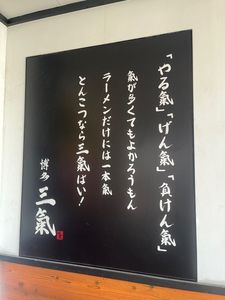 「やる氣」「げん氣」「負けん氣」
氣が多くてもよかろうもん
ラーメンだけには一本氣
とんこつなら三氣ばい！
博多 三氣